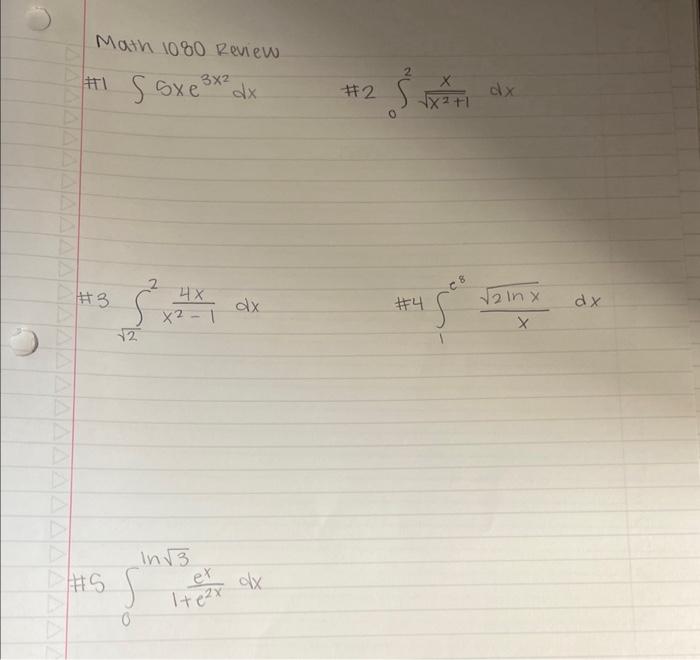 Math 1080 Review
#1 ∫ 5xe^{3x²} dx #2 ∫_0^2 x/√(x²+1) dx
#3 ∫_{√2}^2 4x/(x²-1) dx #4 ∫_1^{e^8} √(2 ln x)/x dx
#5 ∫_0^{ln√3} e^x/(1+e^{2x}) dx